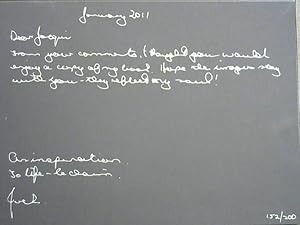 January 2011
Dear Jacqui
From your comments, I thought you would
enjoy a copy of my book. Hope the images stay
with you - they reflect my soul!
An inspiration.
To life -
152/200